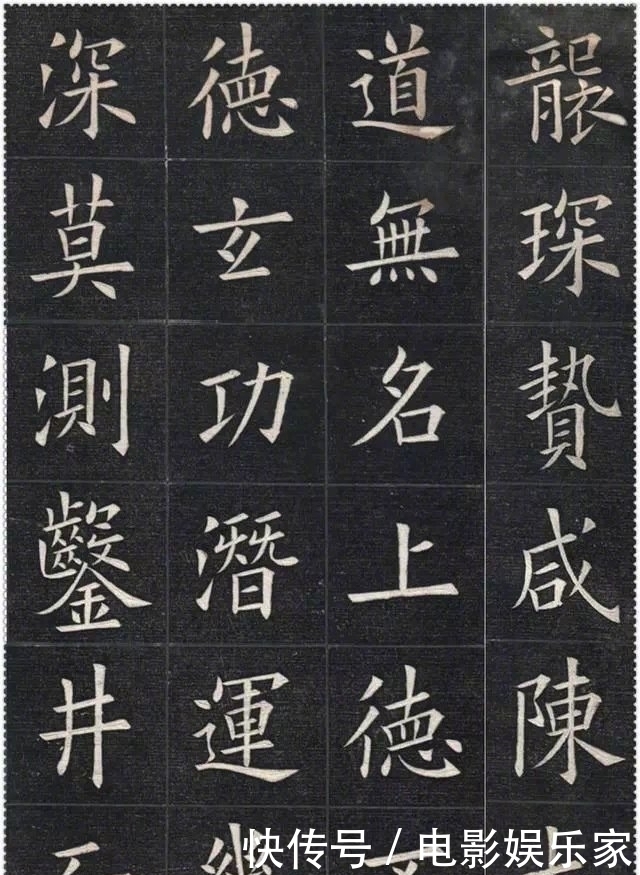 襲琛贄咸陳
道無名上德
德玄功潛運幾
深莫測鑿井
快传号 / 电影娱乐家